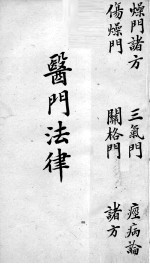 燥門諸方　三氣門　痙病論
傷燥門　關格門　諸方
醫門法律